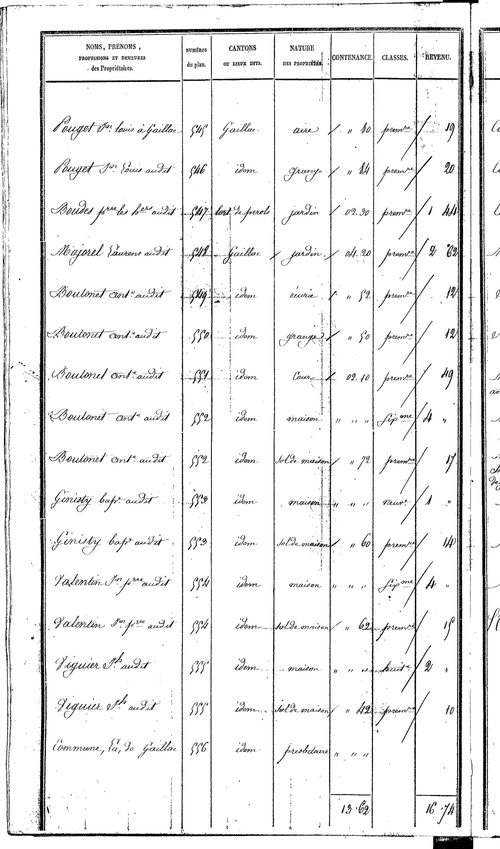 NOMS, PRÉNOMS, PROFESSIONS ET DEMEURES des Propriétaires. NUMÉROS du plan. CANTONS OU LIEUX DITS. NATURE DES PROPRIÉTÉS. CONTENANCE. CLASSES. REVENU.
Pouget Jn louis à Gaillac 545 Gaillac aire / " 80 premre / 19
Pouget Jn Louis audit 546 idem grange / " 84 premre / 20
Boudes pre les hers audit 547 lort de perols jardin / 02.30 premre / 1 44
Majorel Laurens audit 548 Gaillac jardin / 04.20 premre / 2 62
Boutonet Ante audit 549 idem écurie / " 52 premre / 12
Boutonet Ante audit 550 idem grange / " 50 premre / 12
Boutonet Ante audit 551 idem Cour / 02.10 premre / 49
Boutonet Ante audit 552 idem maison " " " sixme / 4 "
Boutonet Ante audit 552 idem sol de maison / " 72 premre / 17
Ginisty bapte audit 553 idem maison " " " neuve / 1 "
Ginisty bapte audit 553 idem sol de maison / " 60 premre / 14
Valentin Jn pre audit 554 idem maison " " " sixme / 4 "
Valentin Jn pre audit 554 idem sol de maison / " 62 premre / 15
Viguier audit 555 idem maison " " " huite / 2 "
Viguier audit 555 idem sol de maison / " 42 premre / 10
Commune, La, de Gaillac 556 idem presbitaire " " "
13.62 16.74